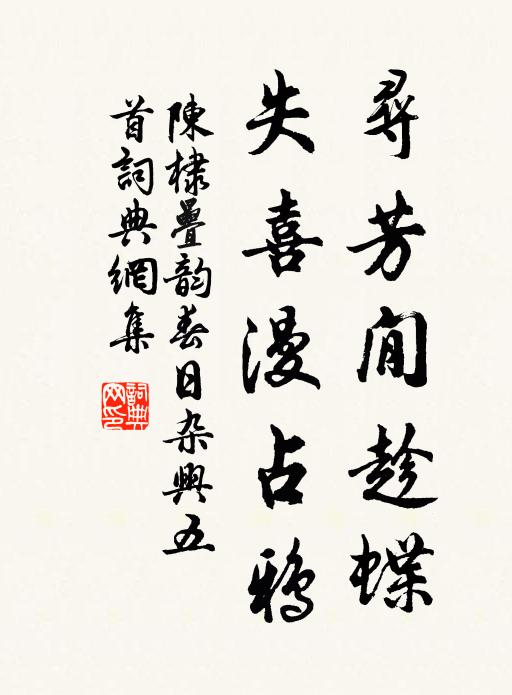 尋芳閒趁蝶
失喜漫占鴉
陳棣疊韵春日杂興五
首詞典網集
詞典
网印